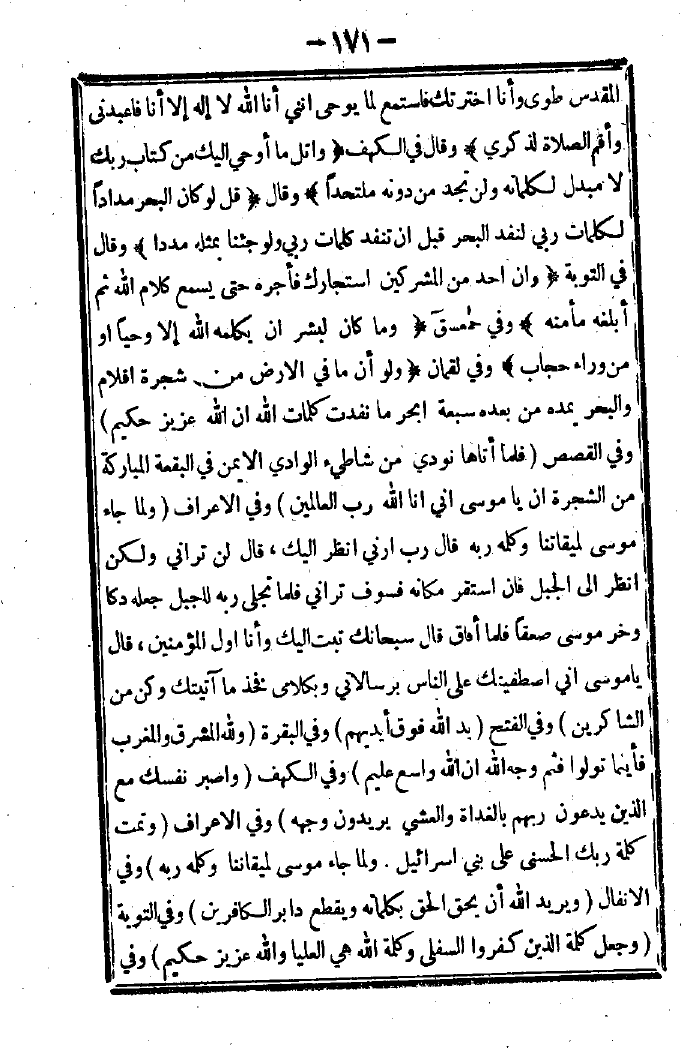 - ١٧١ -
المقدس طوى وأنا اخترتك فاستمع لما يوحى انني أنا الله لا إله إلا أنا فاعبدني
وأقم الصلاة لذكري ﴾ وقال في الكهف ﴿ واتل ما أوحي اليك من كتاب ربك
لا مبدل لكلماته ولن تجد من دونه ملتحداً ﴾ وقال ﴿ قل لو كان البحر مداداً
لكلمات ربي لنفد البحر قبل ان تنفد كلمات ربي ولو جئنا بمثله مددا ﴾ وقال
في التوبة ﴿ وان احد من المشركين استجارك فأجره حتى يسمع كلام الله ثم
أبلغه مأمنه ﴾ وفي حمعسق ﴿ وما كان لبشر ان يكلمه الله إلا وحياً او
من وراء حجاب ﴾ وفي لقمان ﴿ ولو أن ما في الارض من شجرة اقلام
والبحر يمده من بعده سبعة ابحر ما نفدت كلمات الله ان الله عزيز حكيم )
وفي القصص ( فلما أتاها نودي من شاطيء الوادي الايمن في البقعة المباركة
من الشجرة ان يا موسى اني انا الله رب العالمين ) وفي الاعراف ( ولما جاء
موسى لميقاتنا وكلمه ربه قال رب ارني انظر اليك ، قال لن تراني ولكن
انظر الى الجبل فان استقر مكانه فسوف تراني فلما تجلى ربه للجبل جعله دكا
وخر موسى صعقاً فلما أفاق قال سبحانك تبت اليك وأنا اول المؤمنين ، قال
ياموسى اني اصطفيتك على الناس برسالاتي وبكلامى فخذ ما آتيتك وكن من
الشاكرين ) وفي الفتح ( يد الله فوق أيديهم ) وفي البقرة ( ولله المشرق والمغرب
فأينما تولوا فثم وجه الله ان الله واسع عليم ) وفي الكهف ( واصبر نفسك مع
الذين يدعون ربهم بالغداة والعشي يريدون وجهه ) وفي الاعراف ( وتمت
كلمة ربك الحسنى على بني اسرائيل . ولما جاء موسى لميقاتنا وكلمه ربه ) وفي
الانفال ( ويريد الله أن يحق الحق بكلماته ويقطع دابر الكافرين ) وفي التوبة
( وجعل كلمة الذين كفروا السفلى وكلمة الله هي العليا والله عزيز حكيم ) وفي